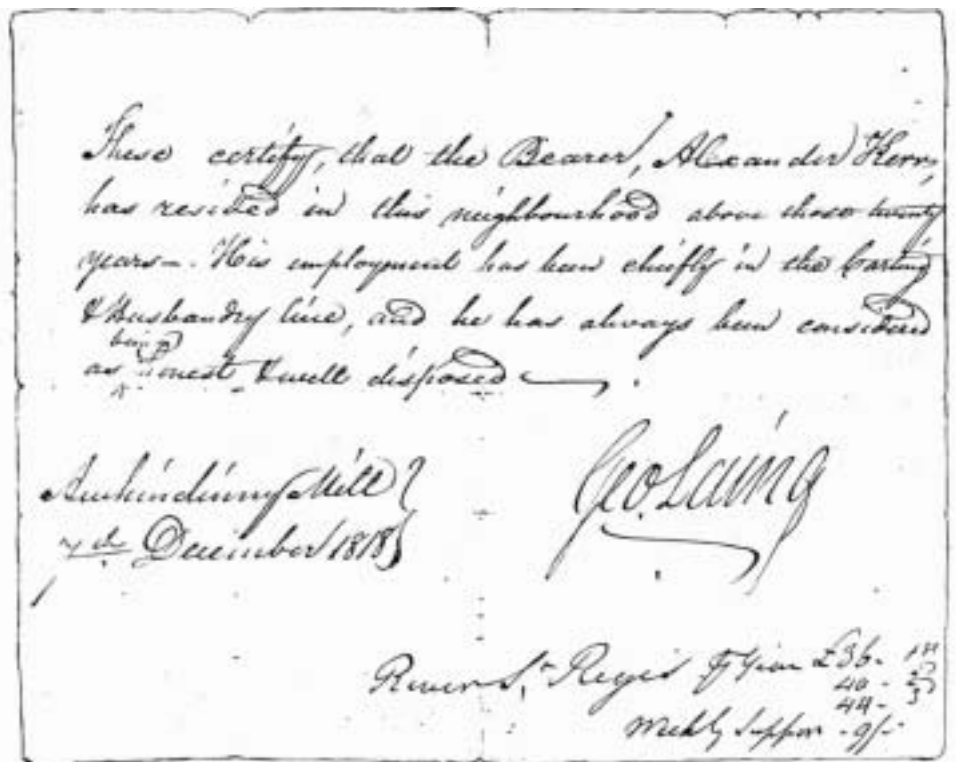 These certify, that the Bearer, Alexander Kerr,
has resided in this neighbourhood above these twenty
years—. His employment has been chiefly in the Carting
& Husbandry line, and he has always been considered
being
as honest & well disposed —.
Auchindinny Mill
7th December 1818
Geo. Laing
River St. Regis £36 - 1st
40 - 2
44 - 3
Weekly - 9/-